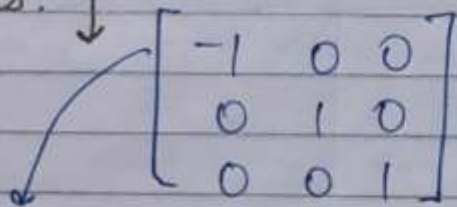 -1 0 0
0 1 0
0 0 1